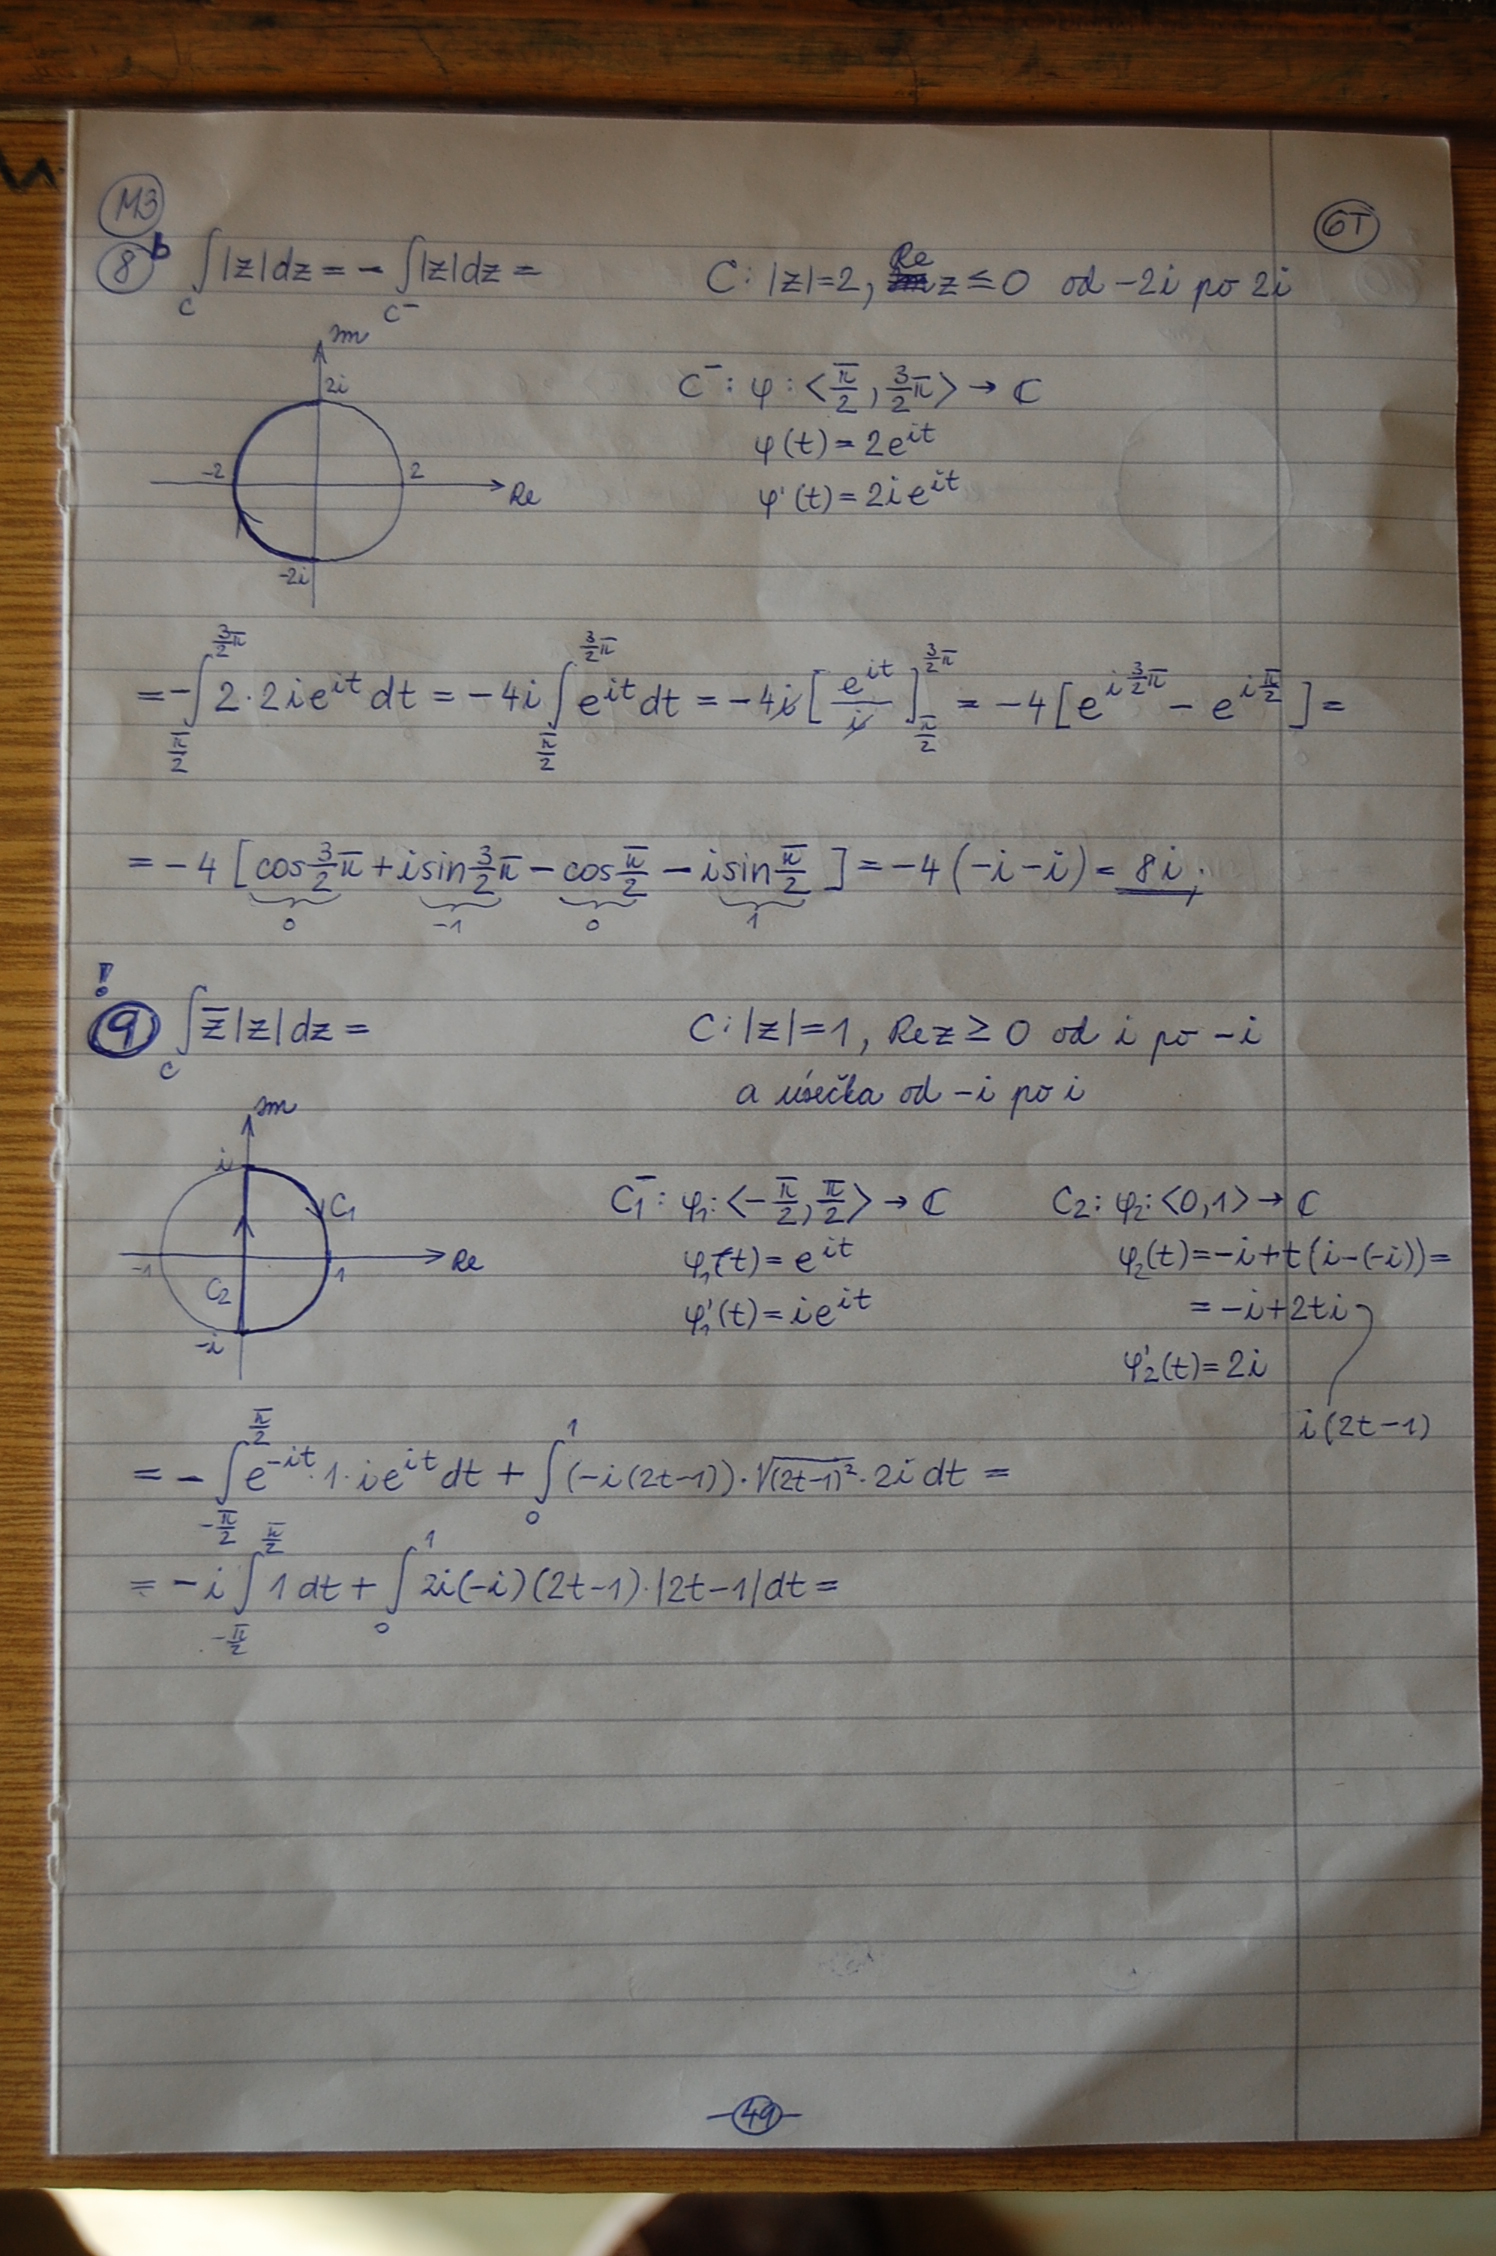 M3
6T
8 b ∫_C |z| dz = - ∫_{C⁻} |z| dz =
C: |z|=2, Re z ≤ 0 od -2i po 2i
Im
2i
-2
2
Re
-2i
C⁻: φ: <π/2, 3/2π> → ℂ
φ(t) = 2e^{it}
φ'(t) = 2ie^{it}
= -∫_{π/2}^{3/2π} 2·2ie^{it} dt = -4i ∫_{π/2}^{3/2π} e^{it} dt = -4i [e^{it}/i]_{π/2}^{3/2π} = -4[e^{i3/2π} - e^{iπ/2}] =
= -4 [cos 3/2π + i sin 3/2π - cos π/2 - i sin π/2] = -4(-i-i) = 8i;
0 -1 0 1
!
9 ∫_C z̄|z| dz =
C: |z|=1, Re z ≥ 0 od i po -i
a úsečka od -i po i
Im
i
C₁
-1
1
Re
C₂
-i
C₁⁻: φ₁: <-π/2, π/2> → ℂ
φ₁(t) = e^{it}
φ₁'(t) = ie^{it}
C₂: φ₂: <0,1> → ℂ
φ₂(t) = -i+t(i-(-i)) =
= -i+2ti
φ₂'(t) = 2i
i(2t-1)
= -∫_{-π/2}^{π/2} e^{-it}·1·ie^{it} dt + ∫_0^1 (-i(2t-1))·√(2t-1)²·2i dt =
= -i ∫_{-π/2}^{π/2} 1 dt + ∫_0^1 2i(-i)(2t-1)·|2t-1| dt =
-49-